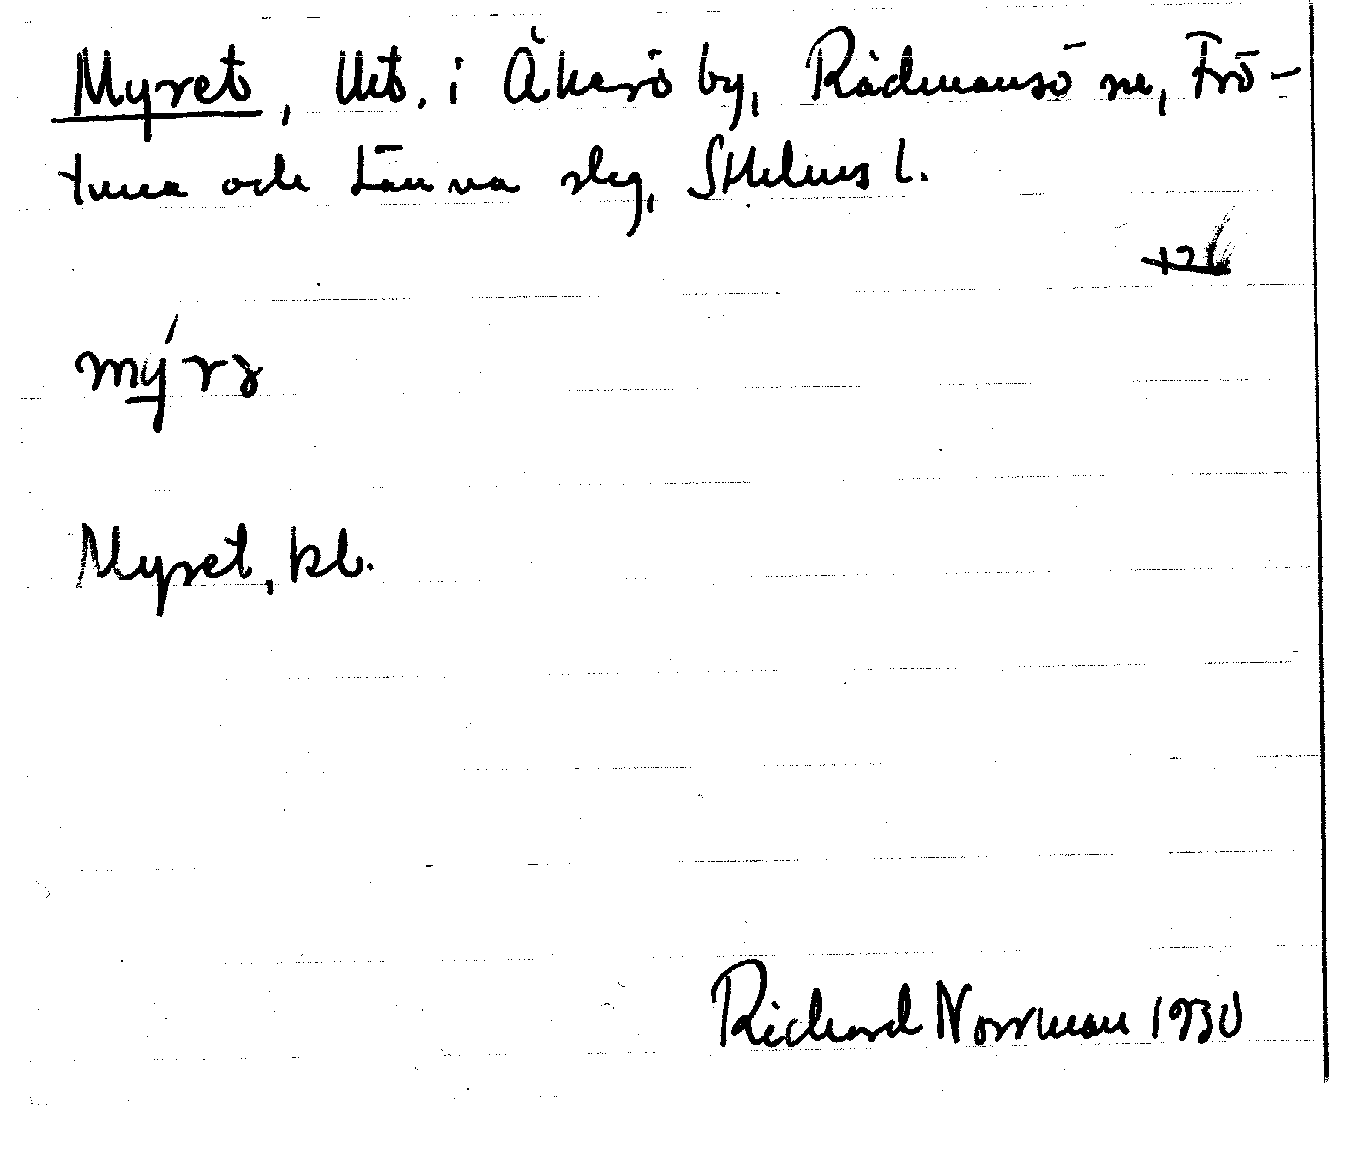 Myret, Utt. i Åkerö by, Rådmansö sn, Frö-
tuna och Länna slg, Sthlms l.
126
mýrz
Myret, kl.
Richard Norrman 1930